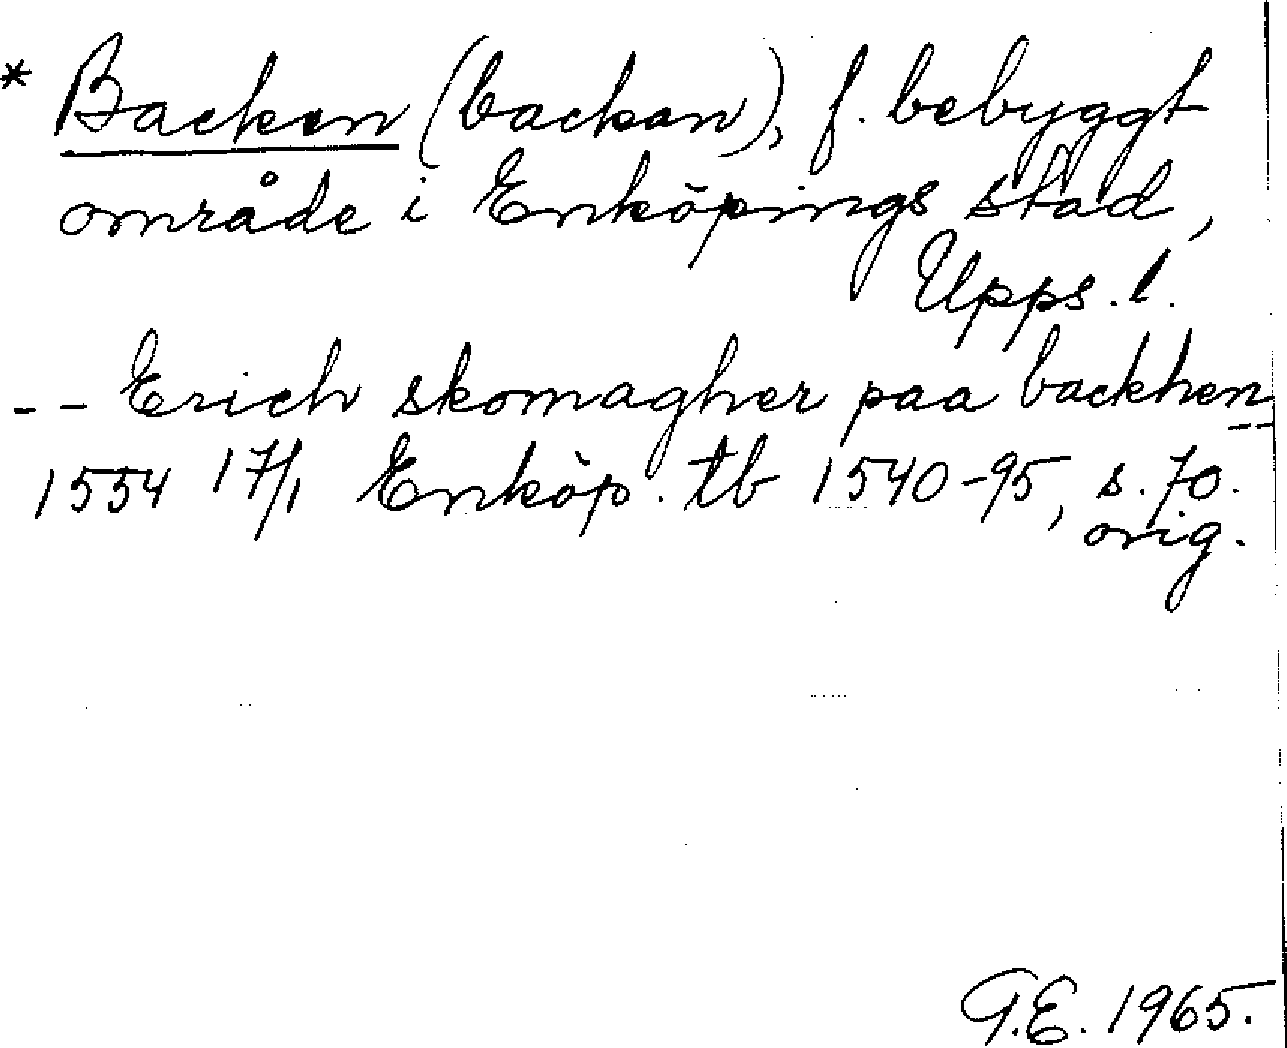 * Backen (backan), f. bebyggt
område i Enköpings stad,
Upps. l.
-- Erich skomagher paa backhen --
1554 17/1 Enköp. tb 1540-95, s. 70.
orig.
G.E. 1965.